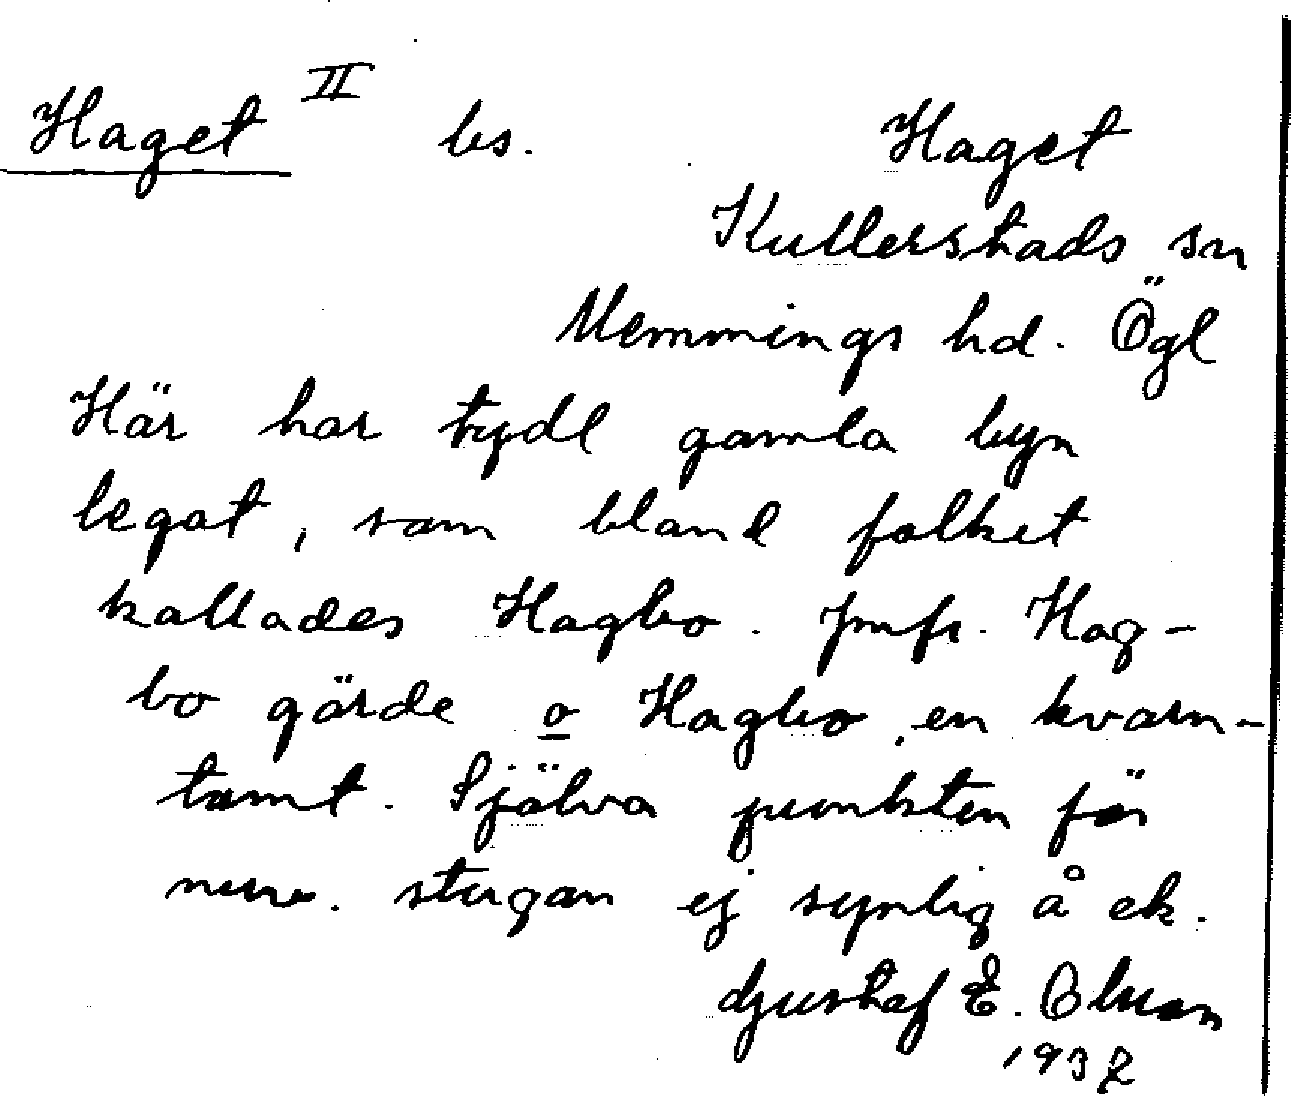 Haget II bs. Haget
Kullerstads sn
Memmings hd. Ögl
Här har tydl gamla byn
legat, som bland folket
kallades Hagbo. Jmfr. Hag-
bo gärde o Hagbo, en kvarn-
tomt. Själva punkten för
nuv. stugan ej synlig å ek.
Gustaf E. Olsson
1932